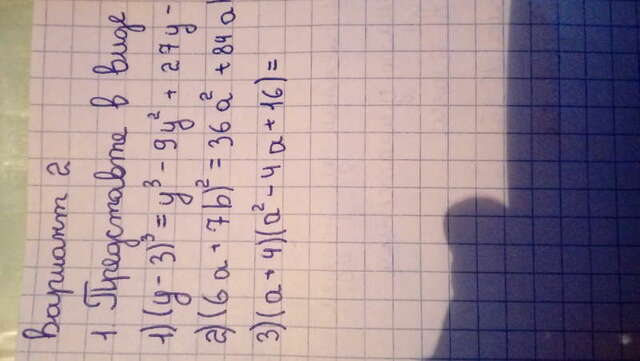 Вариант 2
1 Представте в виде
1) (y - 3)³ = y³ - 9y² + 27y -
2) (6a + 7b)² = 36a² + 84a
3) (a + 4)(a² - 4a + 16) =